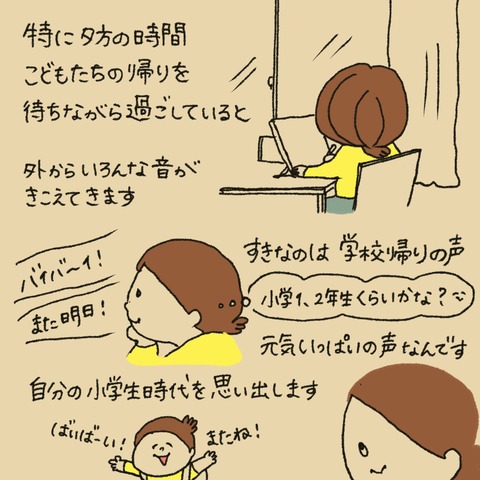 特に夕方の時間
こどもたちの帰りを
待ちながら過ごしていると
外からいろんな音が
きこえてきます
すきなのは 学校帰りの声
バイバ〜イ!
また明日!
小学1、2年生くらいかな?
元気いっぱいの声なんです
自分の小学生時代を思い出します
ばいばーい!
またね!